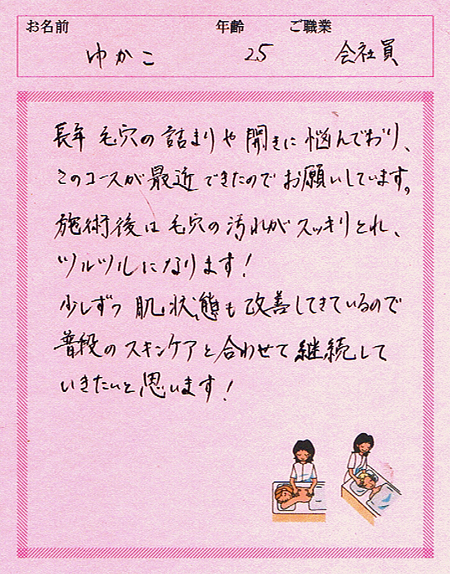 お名前 年齢 ご職業
ゆかこ 25 会社員
長年 毛穴の詰まりや開きに悩んでおり、
このコースが最近できたのでお願いしています。
施術後は毛穴の汚れがスッキリとれ、
ツルツルになります!
少しずつ肌状態も改善してきているので
普段のスキンケアと合わせて継続して
いきたいと思います!